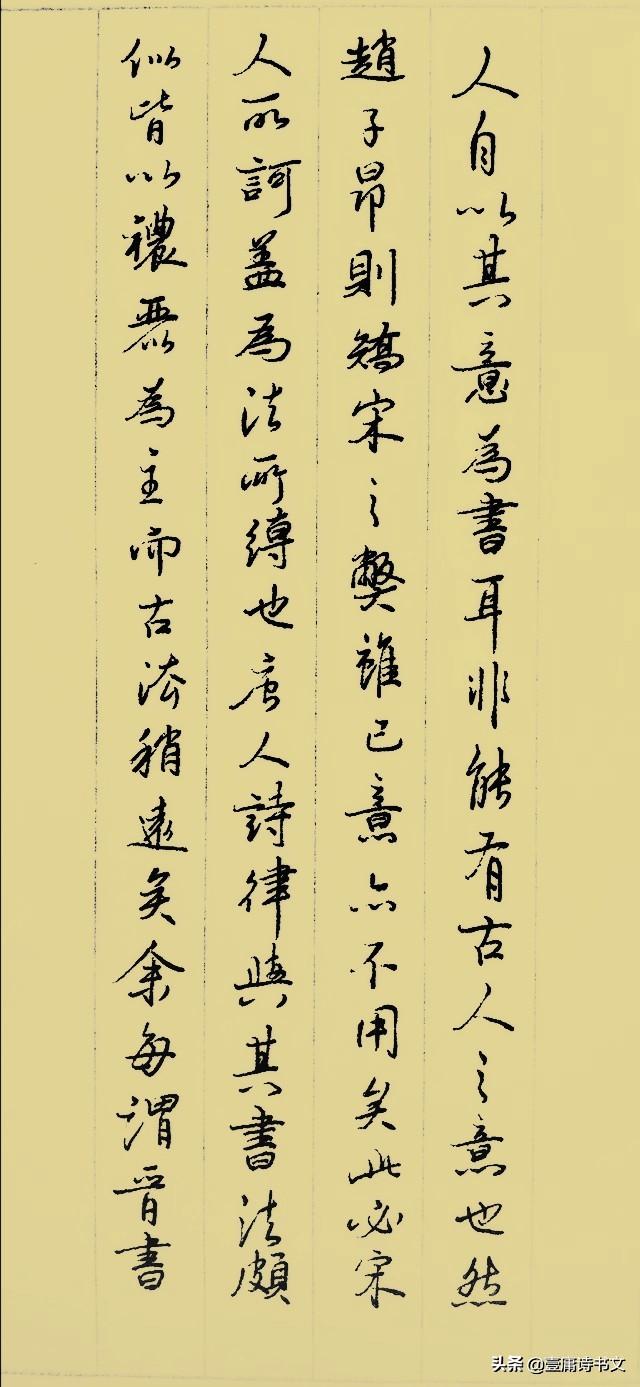 人自以其意為書耳非能有古人之意也然
趙子昂則矯宋之弊雖己意亦不用矣此必宋
人所訶蓋為法所縛也唐人詩律與其書法頗
似皆以禯麗為主而古法稍遠矣余每謂晉書
头条 @壹庸诗书文